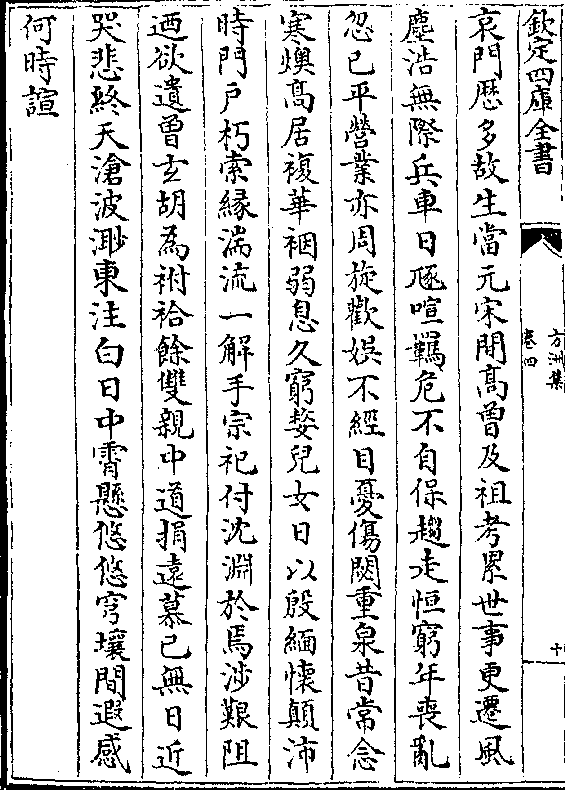 欽定四庫全書
方洲集
卷四
十
哀門歴多故生當元宋間髙曽及祖考累世事更遷風
塵浩無際兵車日豗喧羈危不自保趨走恒窮年喪亂
忽已平營業亦周旋歡娱不經目憂傷閟重泉昔常念
寒燠髙居複華裀弱息久窮嫠兒女日以殷緬懷顛沛
時門戸朽索緣湍流一解手宗祀付沈淵於焉涉艱阻
迺欲遺曽玄胡為祔祫餘雙親中道捐逺慕已無日近
哭悲終天滄波渺東注白日中霄懸悠悠穹壤間遐感
何時諠